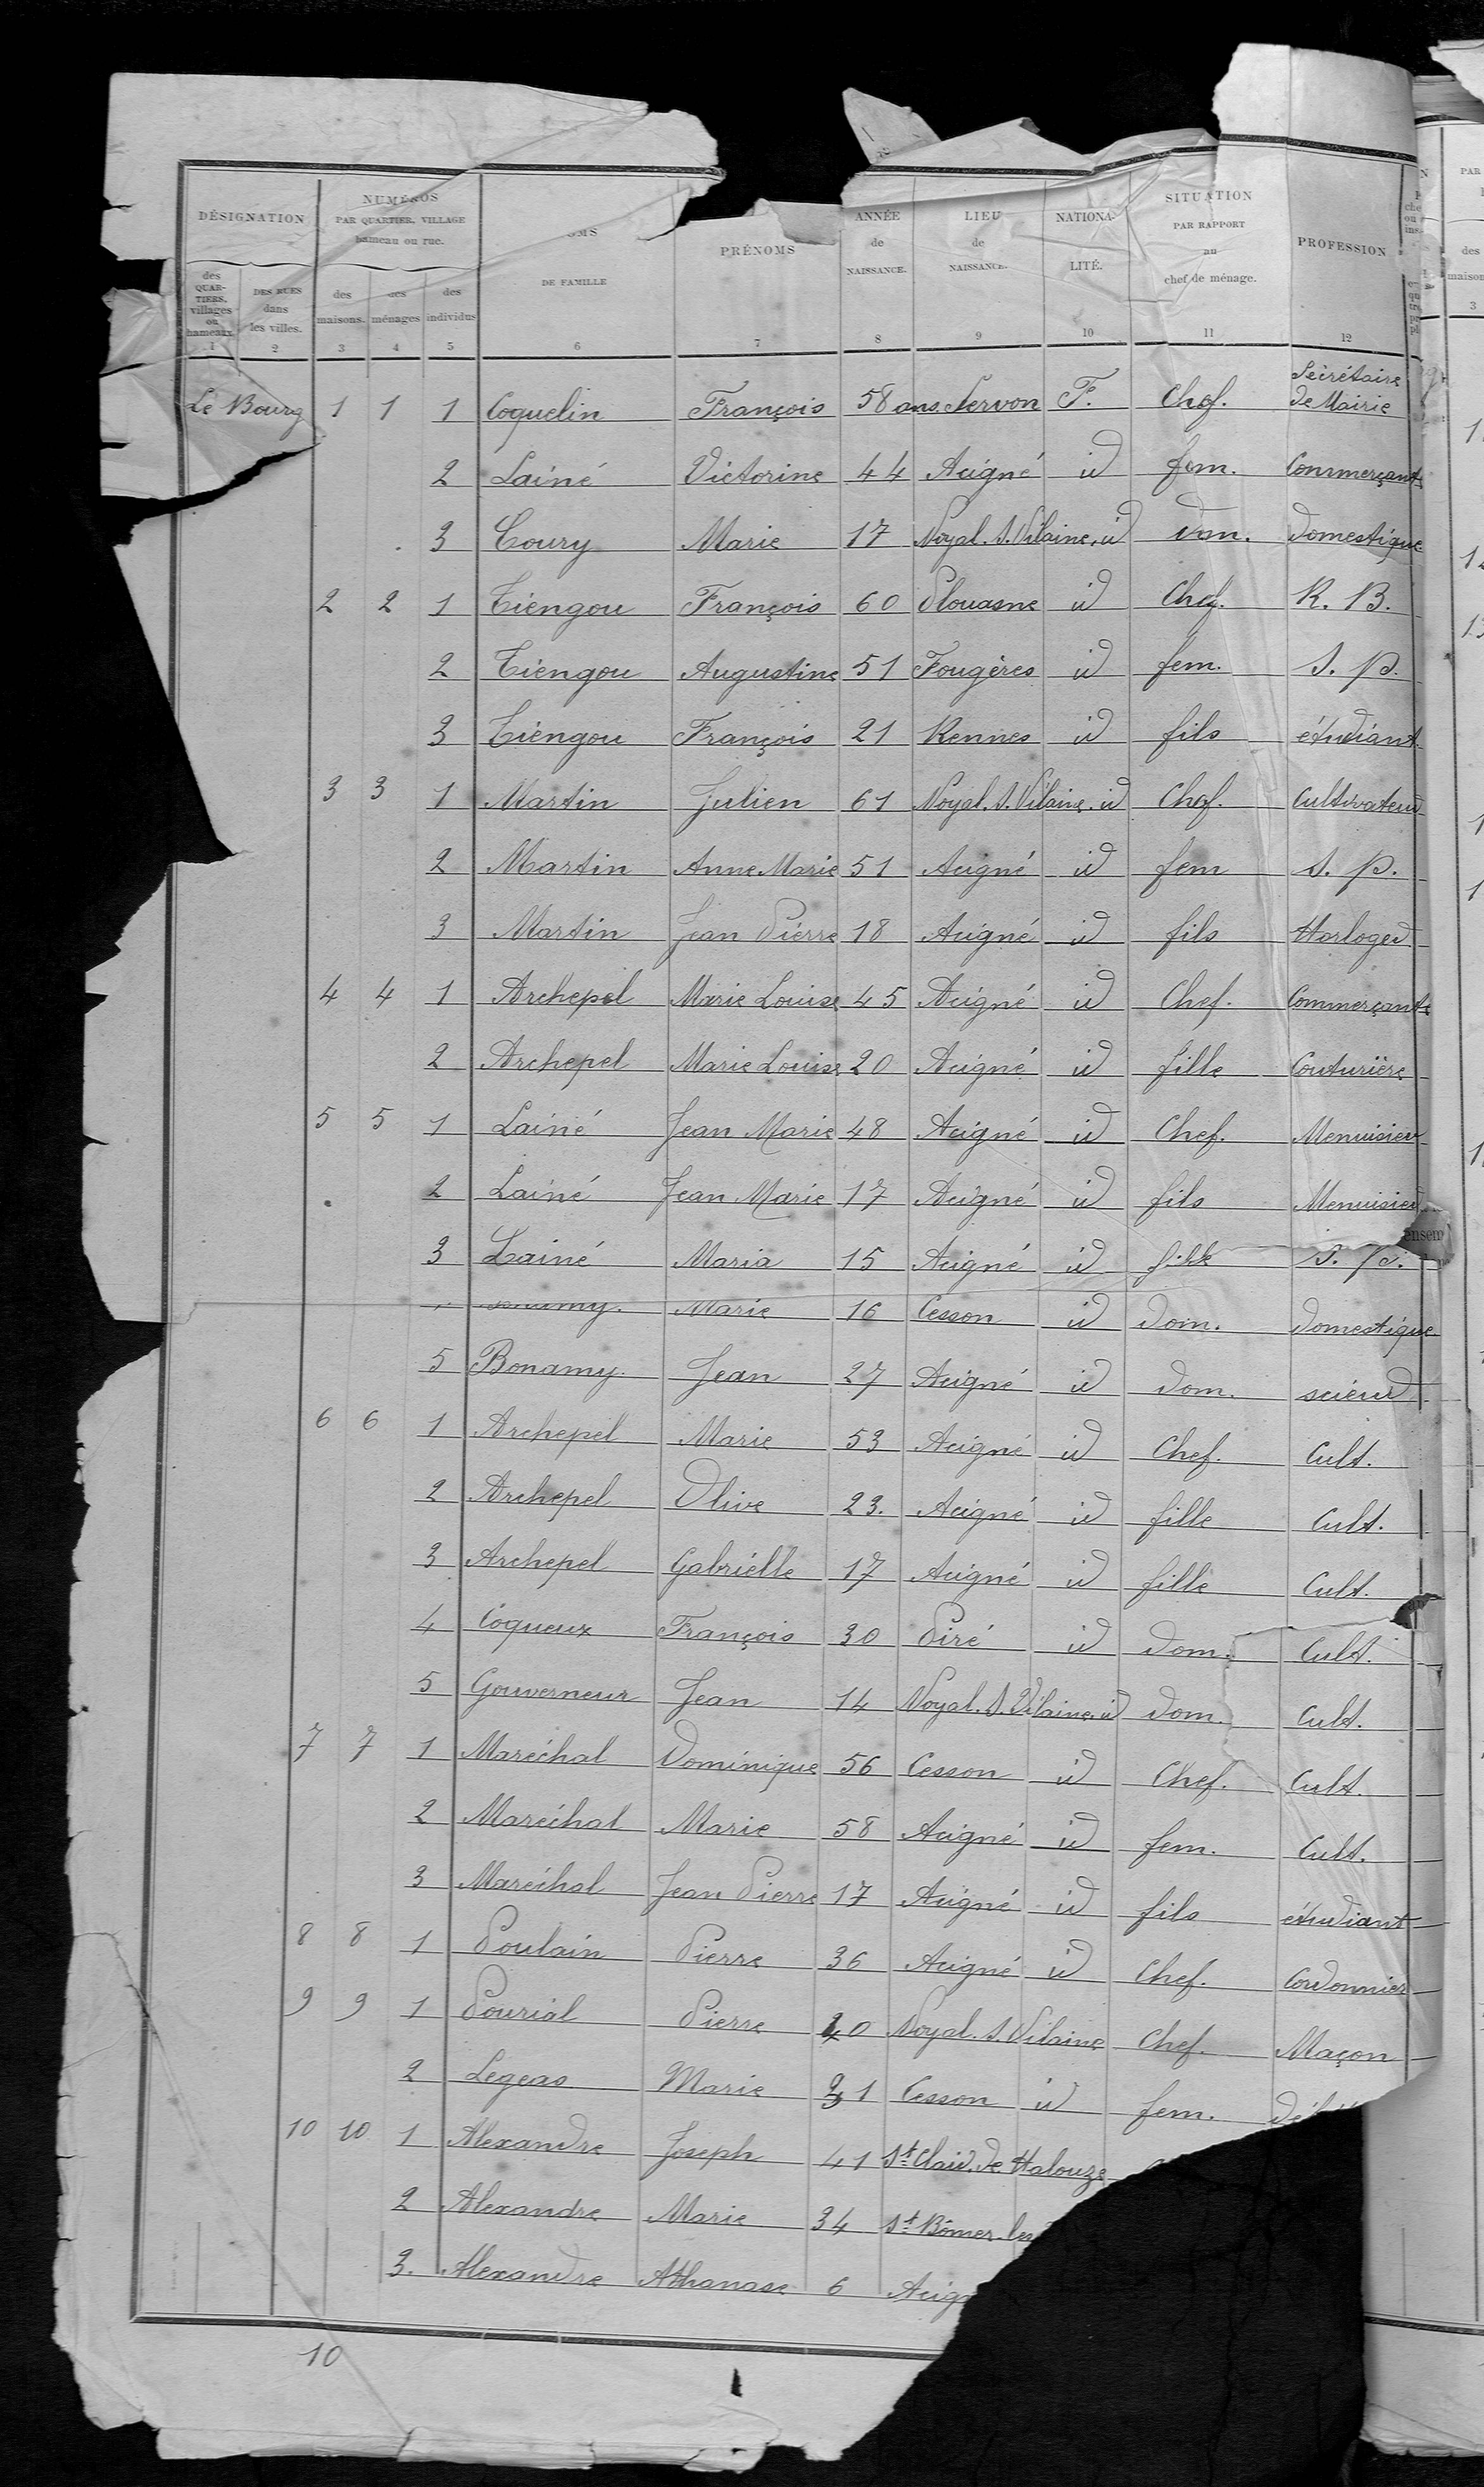 DÉSIGNATION
NUMÉROS
PAR QUARTIER, VILLAGE
hameau ou rue.
des QUARTIERS, villages ou hameaux. DES RUES dans les villes. des maisons. des ménages des individus
DE FAMILLE PRÉNOMS ANNÉE de NAISSANCE. LIEU de NAISSANCE. NATIONALITÉ. SITUATION PAR RAPPORT au chef de ménage. PROFESSION
1 2 3 4 5 6 7 8 9 10 11 12
Le Bourg 1 1 1 Coquelin François 58 ans Servon F. Chef. Secrétaire de Mairie
2 Lainé Victorine 44 Acigné id fem. Commerçante
3 Coury Marie 17 Noyal. S. Vilaine. id dom. domestique
2 2 1 Tiengou François 60 Plouasne id Chef. R. B.
2 Tiengou Augustine 51 Fougères id fem. S. p.
3 Tiengou François 21 Rennes id fils étudiant.
3 3 1 Martin Julien 61 Noyal. S. Vilaine. id Chef. Cultivateur
2 Martin Anne Marie 51 Acigné id fem S. p.
3 Martin Jean Pierre 18 Acigné id fils Horloger
4 4 1 Archepel Marie Louise 45 Acigné id Chef. Commerçante
2 Archepel Marie Louise 20 Acigné id fille Couturière
5 5 1 Lainé Jean Marie 48 Acigné id Chef. Menuisier
2 Lainé Jean Marie 17 Acigné id fils Menuisier
3 Lainé Maria 15 Acigné id fille S. p.
Marie 16 Cesson id dom. domestique
5 Bonamy. Jean 27 Acigné id dom. scieur
6 6 1 Archepel Marie 53 Acigné id Chef. Cult.
2 Archepel Olive 23. Acigné id fille Cult.
3 Archepel Gabrielle 17 Acigné id fille Cult.
4 Coqueux François 30 Piré id dom. Cult.
5 Gouverneur Jean 14 Noyal. S. Vilaine. id dom. Cult.
7 7 1 Maréchal Dominique 56 Cesson id Chef. Cult.
2 Maréchal Marie 58 Acigné id fem. Cult.
3 Maréchal Jean Pierre 17 Acigné id fils étudiant
8 8 1 Poulain Pierre 36 Acigné id Chef. Cordonnier
9 9 1 Pourial Pierre 40 Noyal. S. Vilaine Chef. Maçon
2 Legeas Marie 31 Cesson id fem.
10 10 1 Alexandre Joseph 41 St. Clair. de Halouze
2 Alexandre Marie 34 St. Bômer. les
3. Alexandre Athanase 6 Acig
10